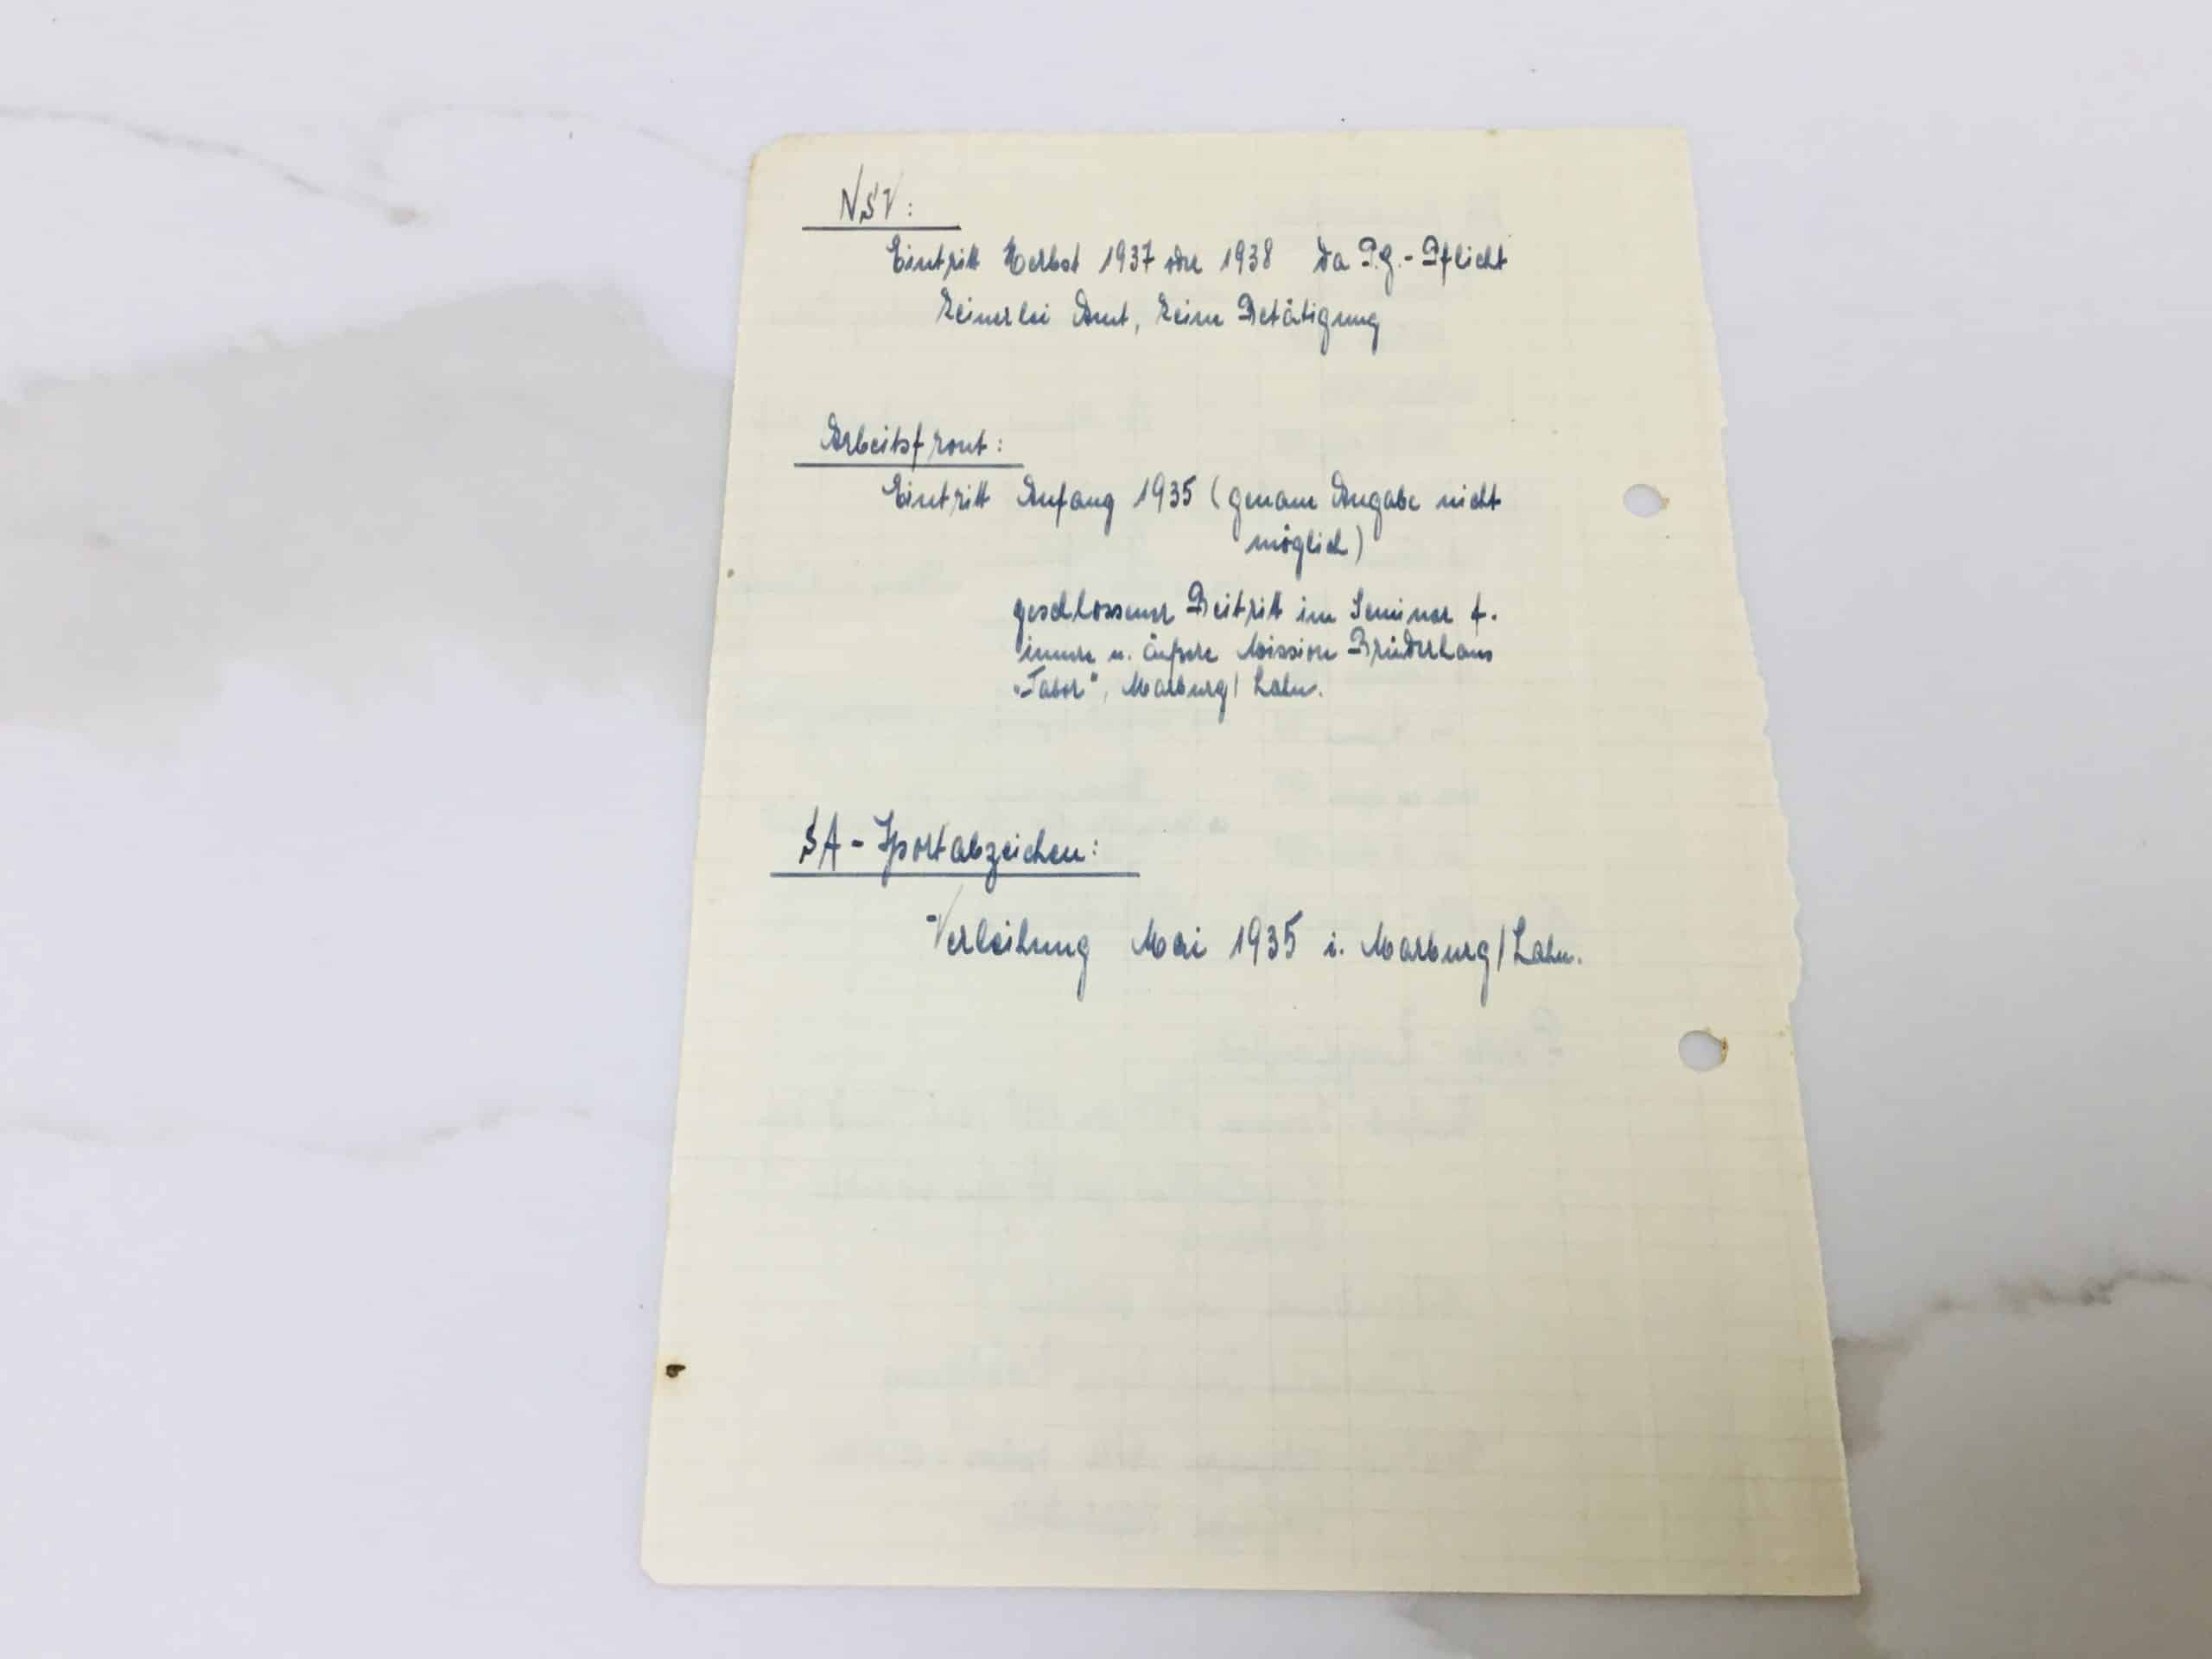 NSV:
Eintritt Herbst 1937 oder 1938 da P.g.-Pflicht
keinerlei Amt, keine Betätigung
Arbeitsfront:
Eintritt Anfang 1935 (genaue Angabe nicht
möglich)
geschlossener Beitritt im Seminar f.
innere u. äußere Mission Brüderhaus
"Tabor", Marburg/Lahn.
SA-Sportabzeichen:
Verleihung Mai 1935 i. Marburg/Lahn.